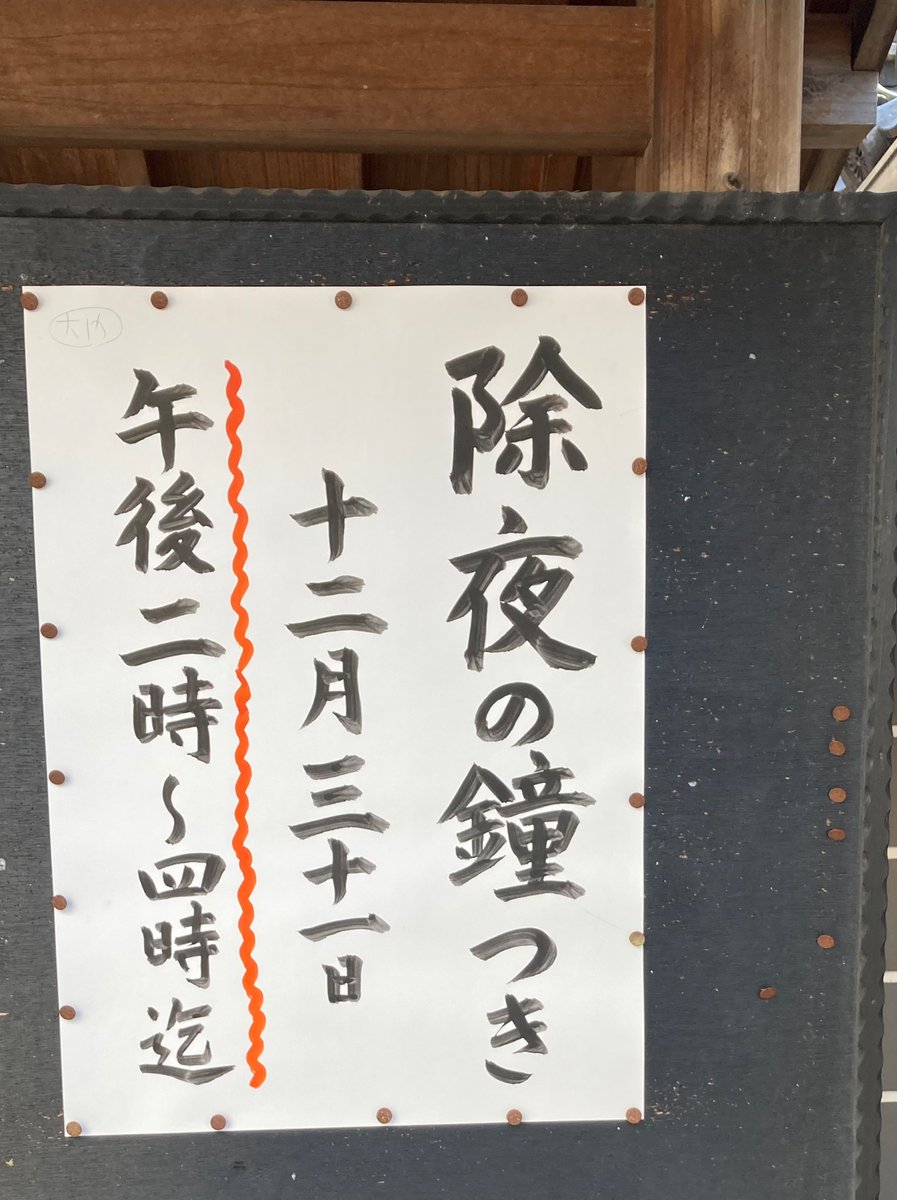 除夜の鐘つき
十二月三十一日
午後二時～四時迄